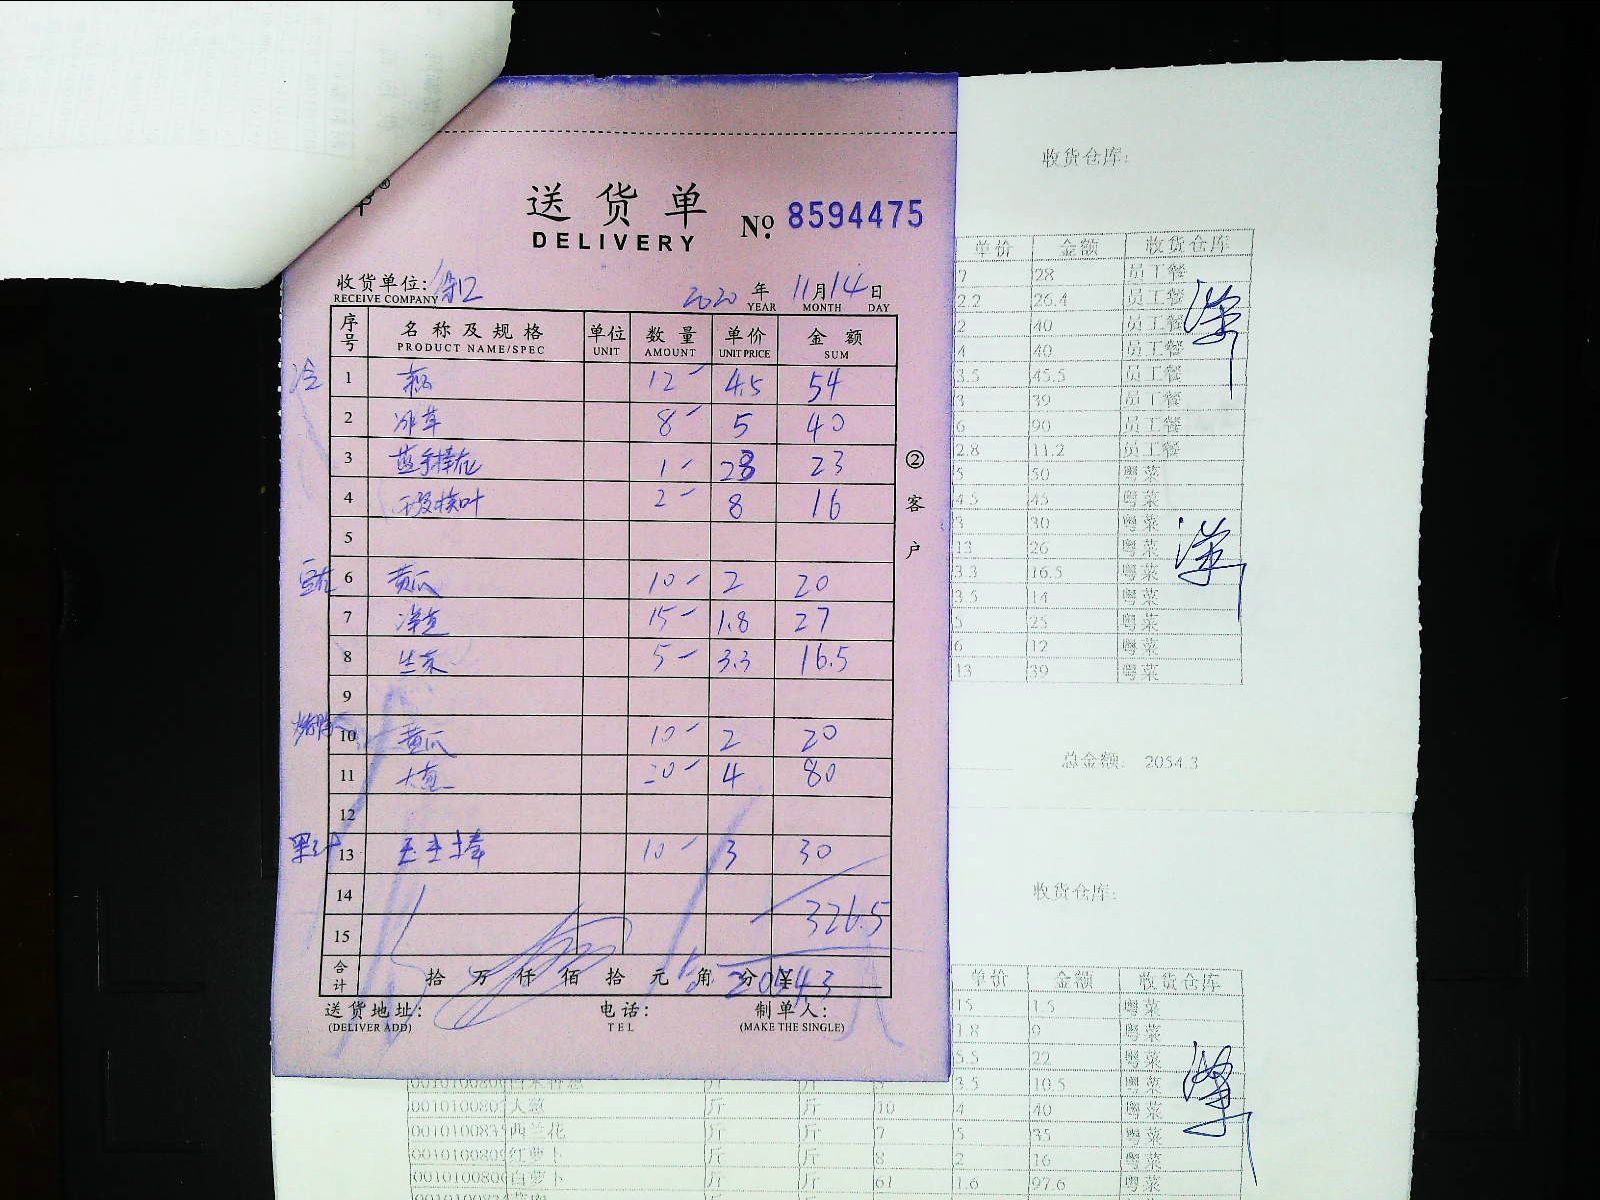 送货单
DELIVERY
No. 8594475
收货单位:
RECEIVE COMPANY
2020 年 11月14日
YEAR MONTH DAY
序号 名称及规格 单位 数量 单价 金额
PRODUCT NAME/SPEC UNIT AMOUNT UNIT PRICE SUM
冷 1 12 4.5 54
2 冰草 8 5 40
3 1 23 23
4 2 8 16
5
6 黄瓜 10 2 20
7 15 1.8 27
8 生菜 5 3.3 16.5
9
10 黄瓜 10 2 20
11 大葱 20 4 80
12
果汁 13 玉米棒 10 3 30
14
326.5
15
合计 拾 万 仟 佰 拾 元 角 分 ¥
2054.3
送货地址: 电话: 制单人:
(DELIVER ADD) TEL (MAKE THE SINGLE)
②客户
收货仓库:
单价 金额 收货仓库
2 28 员工餐
2.2 26.4 员工餐
2 40 员工餐
4 40 员工餐
3.5 45.5 员工餐
3 39 员工餐
6 90 员工餐
2.8 11.2 员工餐
5 50 粤菜
4.5 45 粤菜
3 30 粤菜
13 26 粤菜
3.3 16.5 粤菜
3.5 14 粤菜
5 25 粤菜
6 12 粤菜
13 39 粤菜
总金额: 2054.3
收货仓库:
单价 金额 收货仓库
15 1.5 粤菜
1.8 9 粤菜
5.5 22 粤菜
斤 斤 3.5 10.5 粤菜
大葱 斤 斤 10 4 40 粤菜
西兰花 斤 斤 7 5 35 粤菜
红萝卜 斤 斤 8 2 16 粤菜
白萝卜 斤 斤 61 1.6 97.6 粤菜